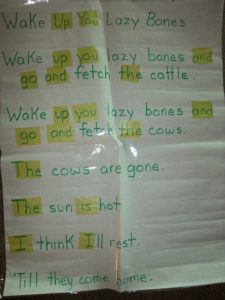 Wake Up You Lazy Bones
Wake up you lazy bones and
go and fetch the cattle.
Wake up you lazy bones and
go and fetch the cows.
The cows are gone.
The sun is hot
I think I'll rest.
'Till they come home.